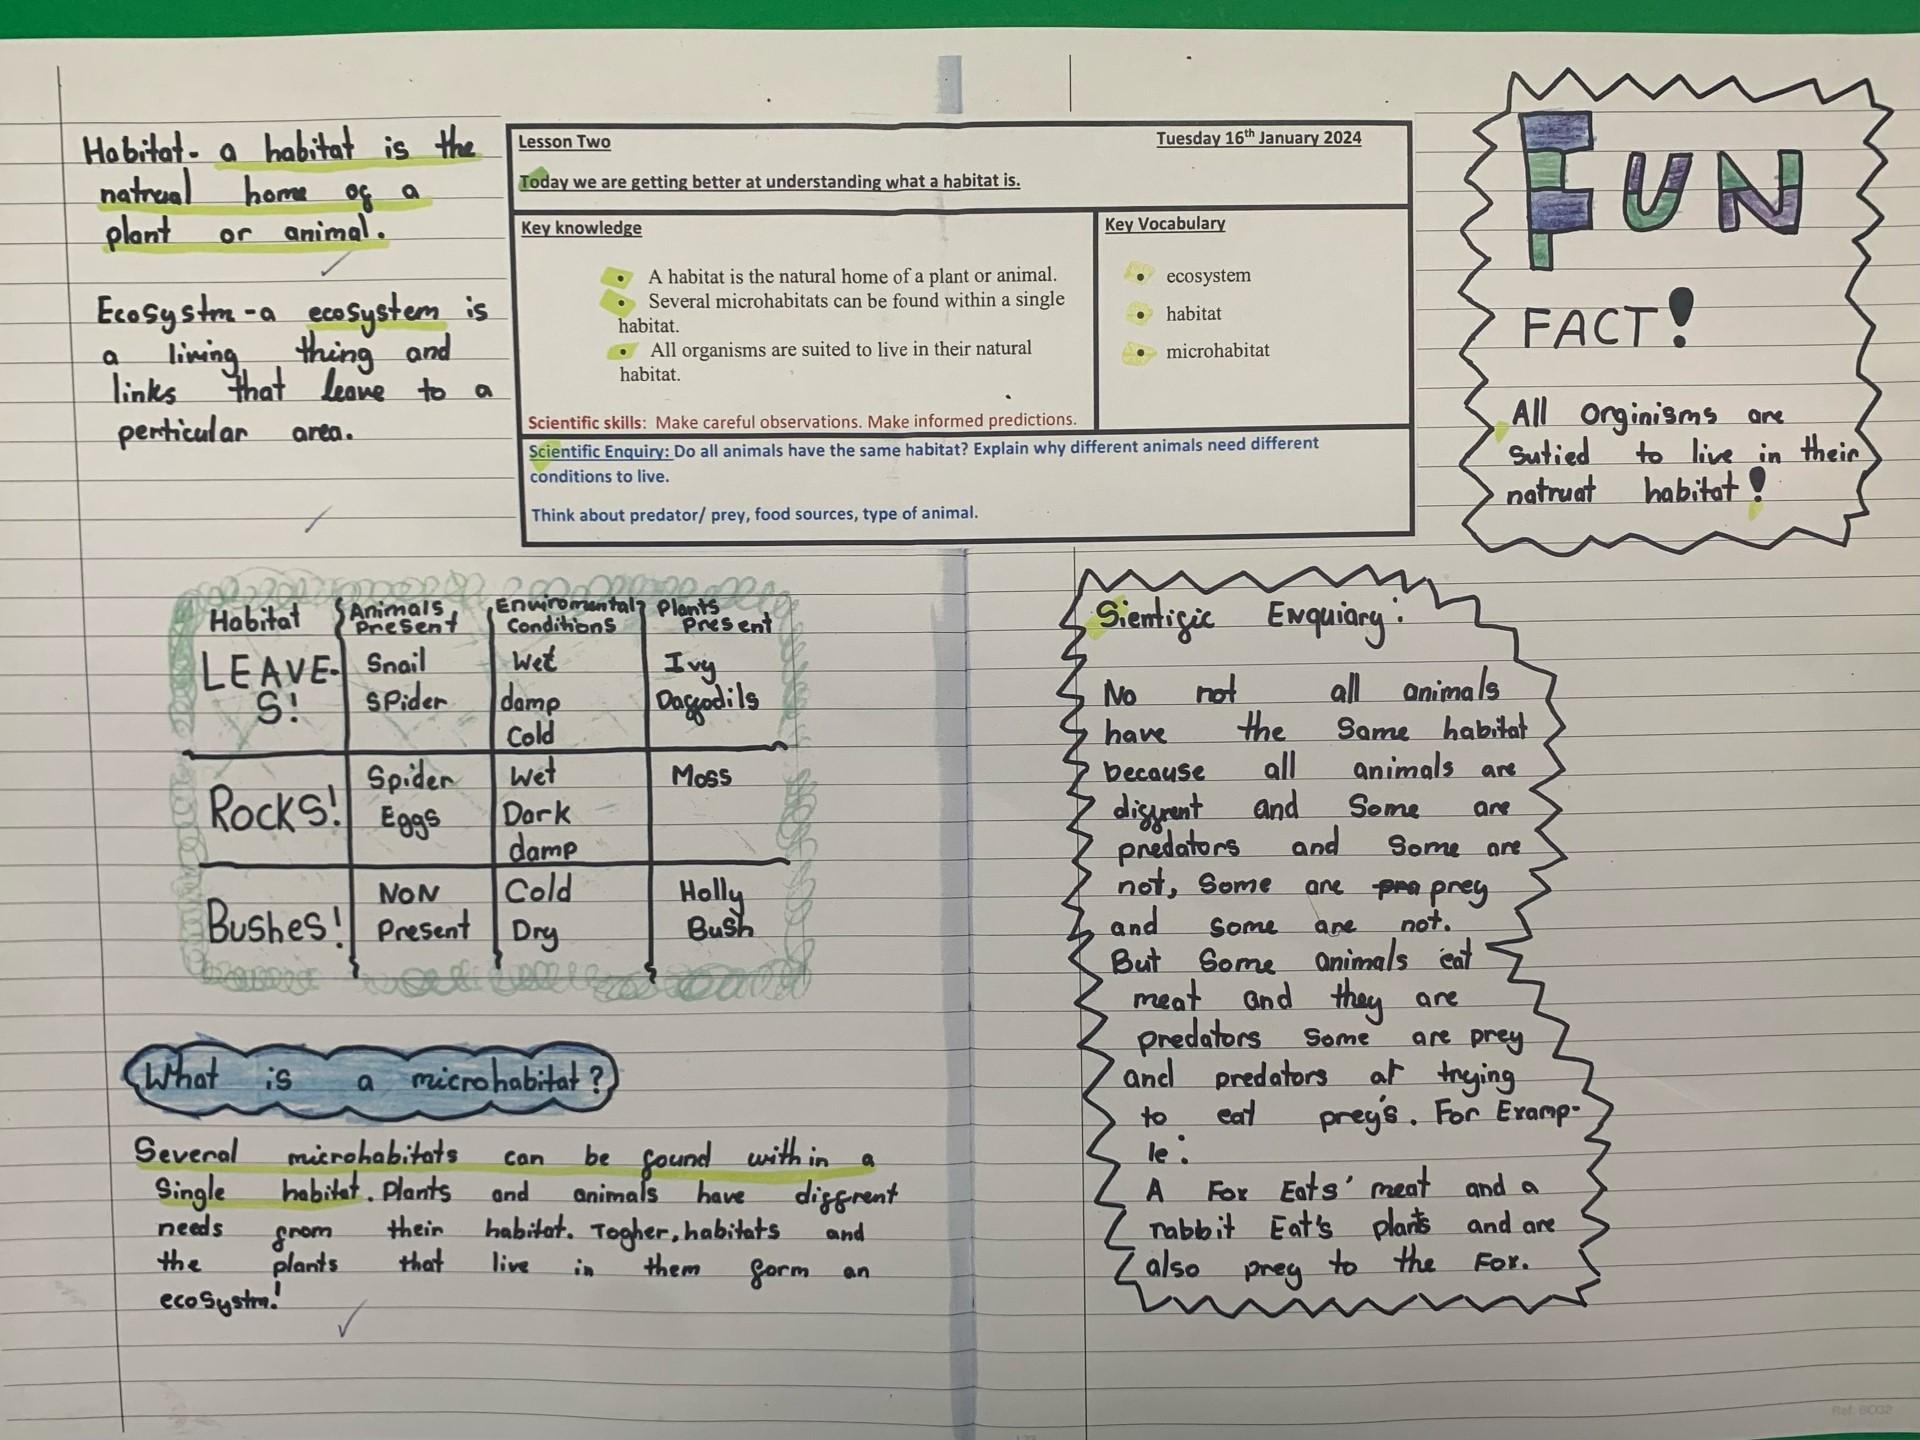 Habitat- a habitat is the
natrual home of a
plant or animal.
Ecosystm-a ecosystem is
a living thing and
links that leave to a
perticular area.
Lesson Two
Tuesday 16th January 2024
Today we are getting better at understanding what a habitat is.
Key knowledge
• A habitat is the natural home of a plant or animal.
• Several microhabitats can be found within a single
habitat.
• All organisms are suited to live in their natural
habitat.
Scientific skills: Make careful observations. Make informed predictions.
Key Vocabulary
• ecosystem
• habitat
• microhabitat
Scientific Enquiry: Do all animals have the same habitat? Explain why different animals need different
conditions to live.
Think about predator/ prey, food sources, type of animal.
FUN
FACT!
All orginisms are
sutied to live in their
natruat habitat!
Habitat Animals Present Enviromental Conditions Plants Present
LEAVE-
S!
Snail
Spider
Wet
damp
Cold
Ivy
Daffodils
ROCKS!
Spider
Eggs
Wet
Dark
damp
Moss
Bushes!
NON
Present
Cold
Dry
Holly
Bush
What is a microhabitat?
Several microhabitats can be found within a
Single habitat. Plants and animals have diffrent
needs from their habitat. Togher, habitats and
the plants that live in them form an
ecosystm!
Sientific Enquiary:
No not all animals
have the Same habitat
because all animals are
diffrent and Some are
predators and Some are
not, Some are pra prey
and some are not.
But Some animals eat
meat and they are
predators Some are prey
and predators at trying
to eat prey's. For Examp-
le:
A Fox Eats' meat and a
rabbit Eat's plants and are
also prey to the Fox.
Ref: BC02